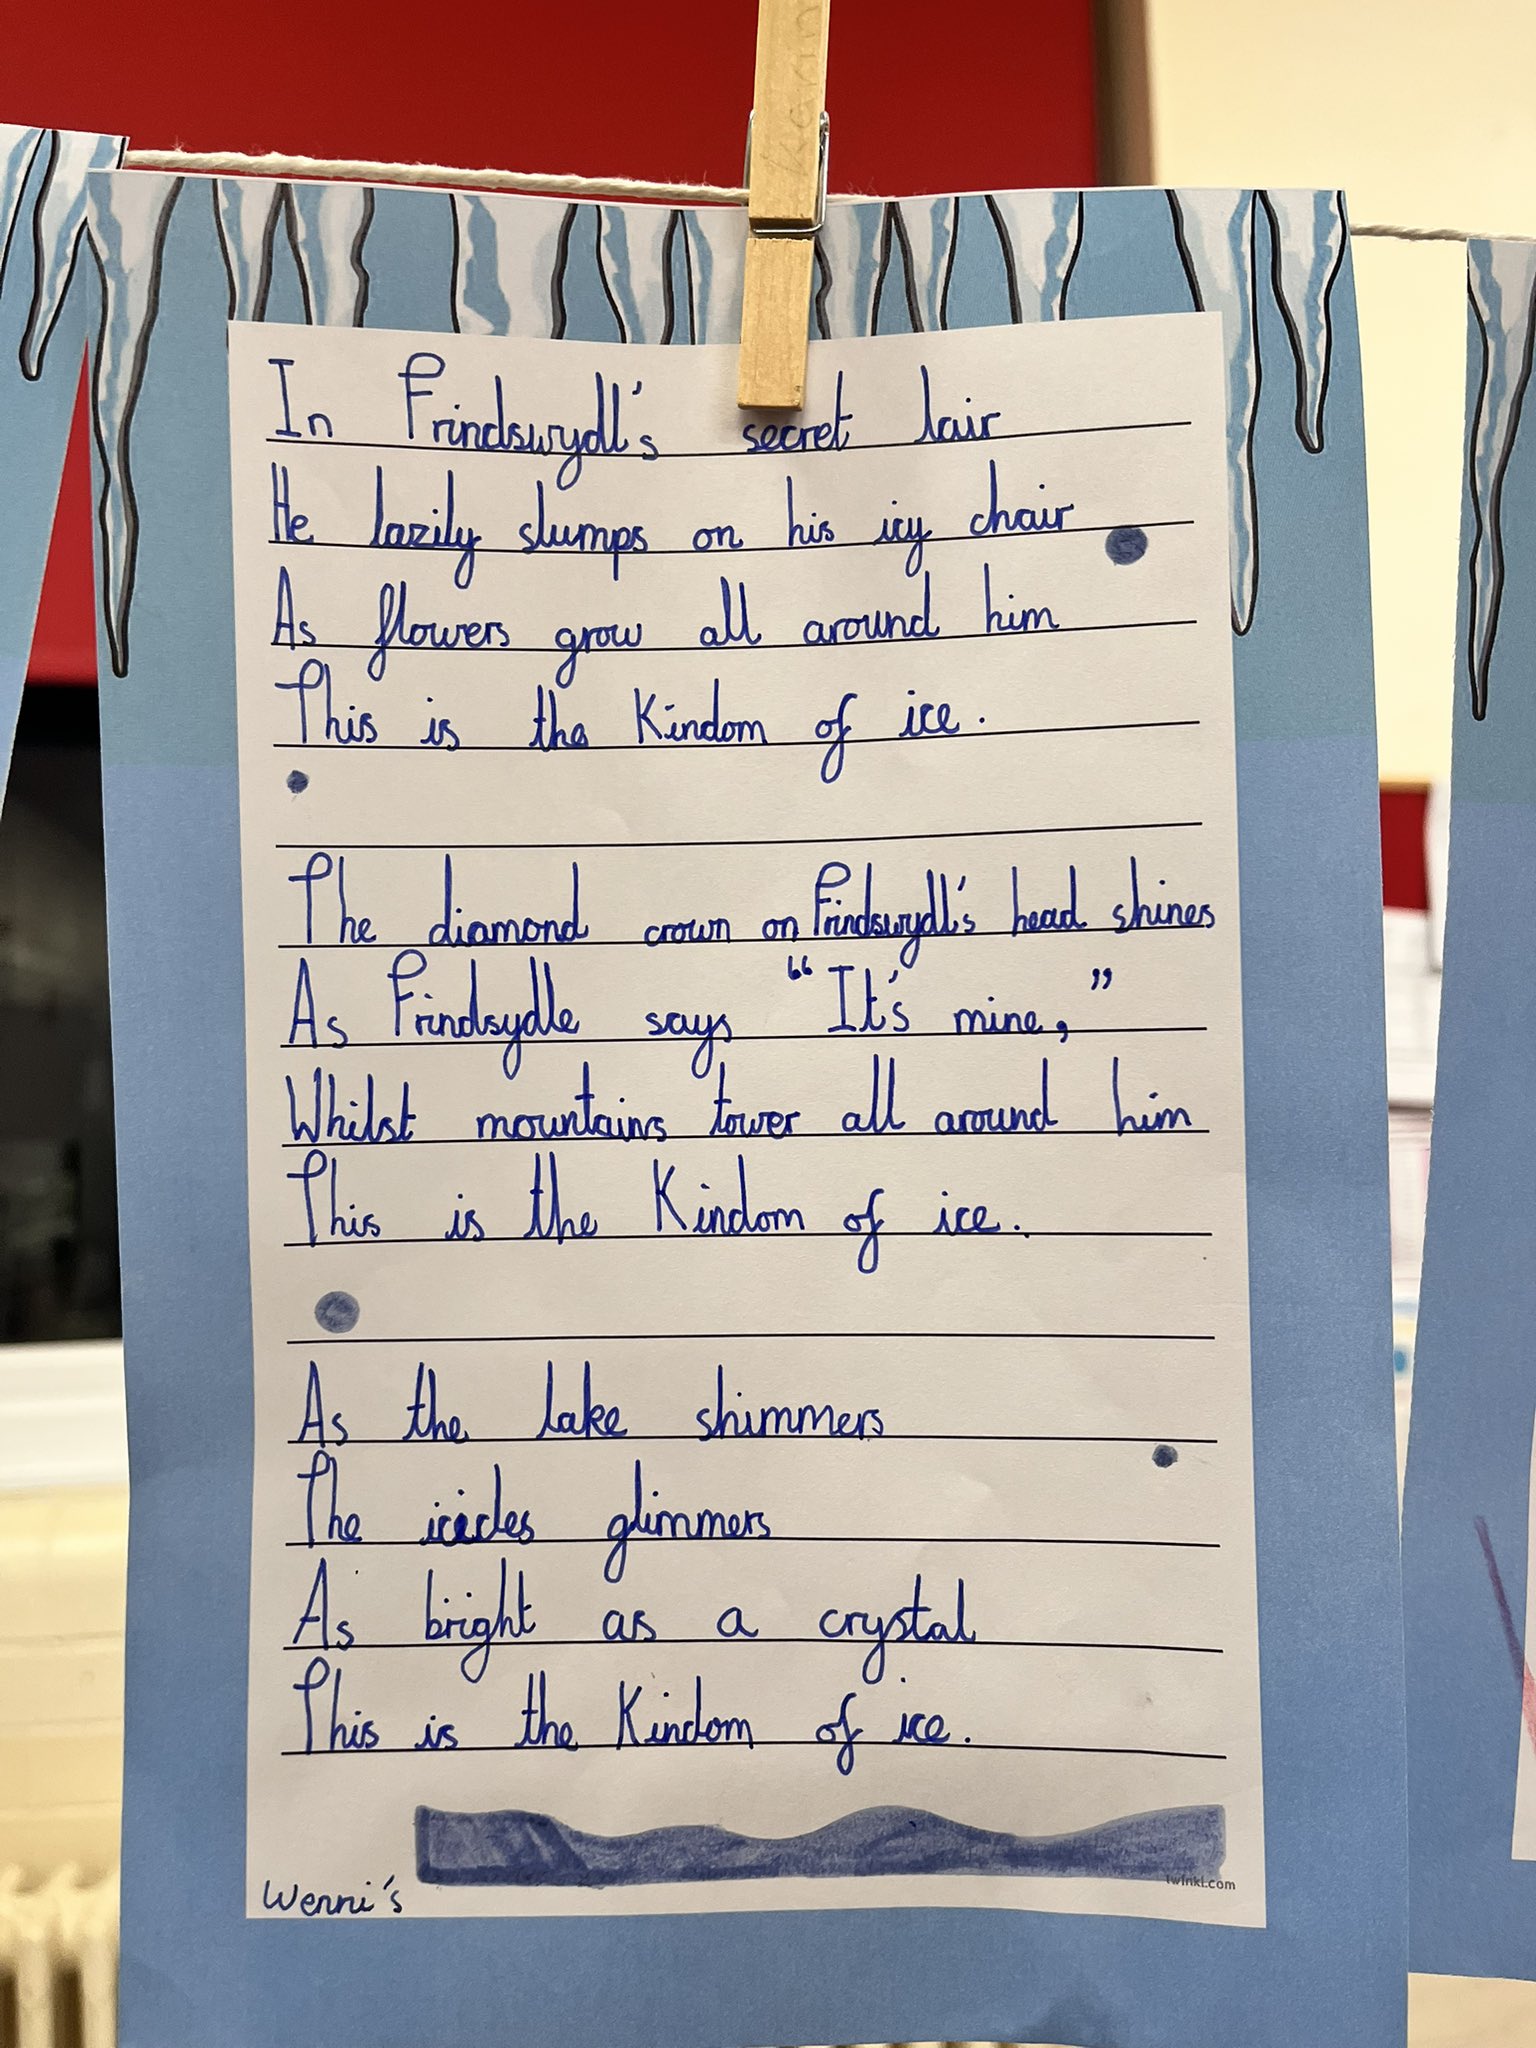 Karin
In Frindswydll's secret lair
He lazily slumps on his icy chair
As flowers grow all around him
This is the Kindom of ice.
The diamond crown on Frindswydll's head shines
As Frindsydlle says "It's mine,"
Whilst mountains tower all around him
This is the Kindom of ice.
As the lake shimmers
The icicles glimmers
As bright as a crystal
This is the Kindom of ice.
twinkl.com
Wenni's